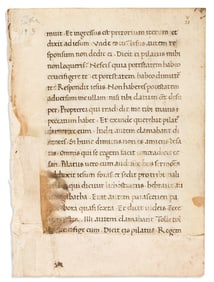 muit. Et ingressus est pretorium iterum. et
dixit ad iesum. Unde es tu. iesus autem res
sponsum non dedit ei. Dicit ei pilatus mihi
non loqueris. Nescis quia potestatem habeo
crucifigere te. et potestatem habeo dimitte
te. Respondit iesus. Non haberes potestatem
adversum me ullam. nisi tibi datum esset desu
per. Propterea qui tradidit me tibi maius
peccatum habet. Et exinde querebat pilatus
eum. Iudei autem clamabant di
centes. Si hunc dimittis non es amicus cesa
ris. Omnis qui se regem facit contradicit ce
sari. Pilatus vero cum audisset hos sermones
iesum. et sedit pro tribunali
qui dicitur lichostrotos. hebraice au
Erat autem parasceue pas
hora quasi sexta. Et dicit iudeis. Ecce
Illi autem clamabant. Tolle tol
crucifige eum. Dicit eis pilatus. Regem